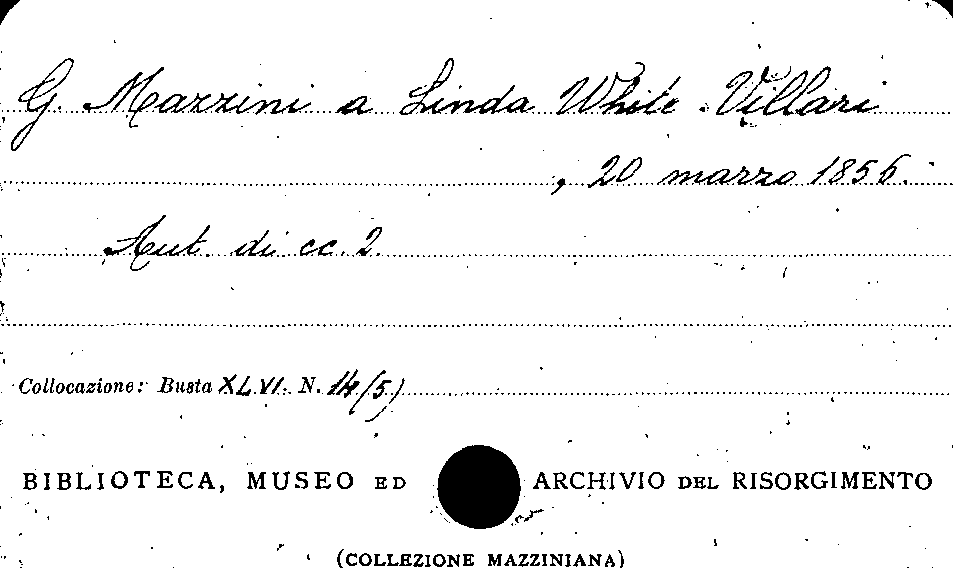 G. Mazzini a Linda White Villari
, 20 marzo 1856.
Aut. di cc. 2.
Collocazione: Busta XLVI. N. 14 (5)
BIBLIOTECA, MUSEO ED ARCHIVIO DEL RISORGIMENTO
(COLLEZIONE MAZZINIANA)